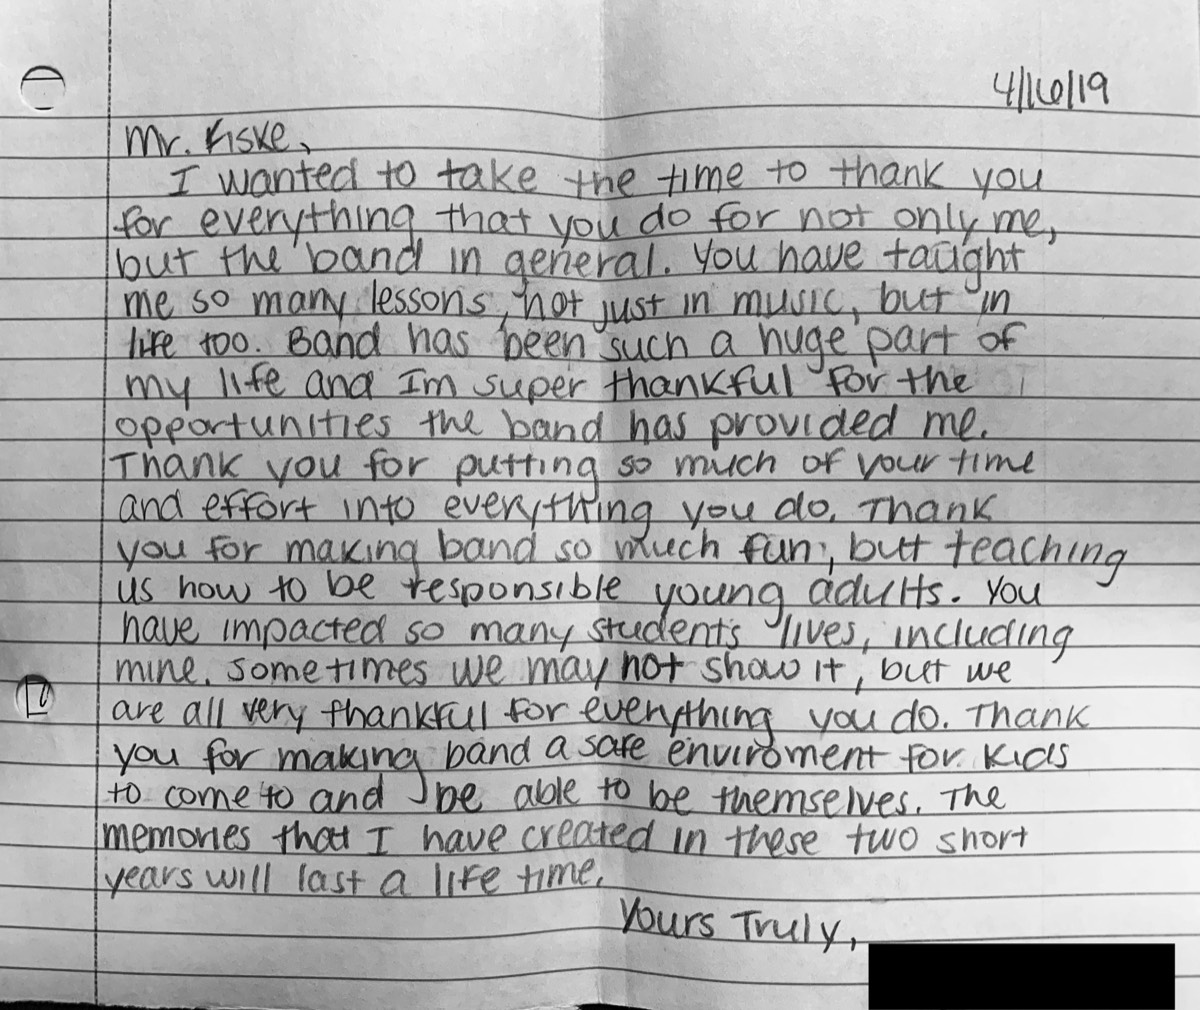 4/16/19
Mr. Fiske,
I wanted to take the time to thank you
for everything that you do for not only me,
but the band in general. You have taught
me so many lessons, not just in music, but in
life too. Band has been such a huge part of
my life and Im super thankful for the
opportunities the band has provided me.
Thank you for putting so much of your time
and effort into everything you do. Thank
you for making band so much fun, but teaching
us how to be responsible young adults. You
have impacted so many students lives, including
mine. Sometimes we may not show it, but we
are all very thankful for everything you do. Thank
you for making band a safe enviroment for kids
to come to and be able to be themselves. The
memories that I have created in these two short
years will last a life time.
Yours Truly,